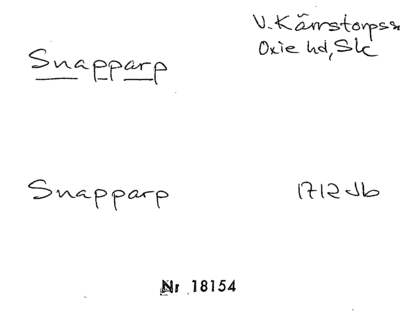 V. Kärrstorps sn
Oxie hd, Sk
Snapparp
Snapparp 1712 Jb
Nr 18154